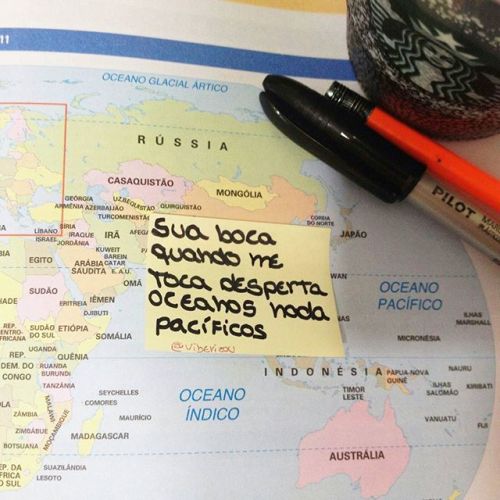 11
OCEANO GLACIAL ÁRTICO
RÚSSIA
CASAQUISTÃO
MONGÓLIA
GEÓRGIA
UZBEQUISTÃO
ARMÊNIA AZERBAIJÃO QUIRGUISTÃO
TURCOMENISTÃO
COREIA
DO NORTE
JAPÃO
SÍRIA
LÍBANO
ISRAEL IRAQUE IRÃ
JORDÂNIA
KUWEIT
BAREIN
CATAR
E.A.U.
EGITO
ARÁBIA
SAUDITA
OMÃ
Sua boca
quando me
toca desperta
oceanos nada
pacíficos
OCEANO
PACÍFICO
SUDÃO
ERITREIA
IÊMEN
DJIBUTI
SUDÃO
DO SUL
ETIÓPIA
SOMÁLIA
REP.
CENTRO-
AFRICANA
UGANDA
QUÊNIA
DEM. DO
CONGO
RUANDA
BURUNDI
TANZÂNIA
ILHAS
MARSHALL
MICRONÉSIA
NAURU
KIRIBATI
INDONÉSIA
PAPUA-NOVA
GUINÉ
TIMOR
LESTE
ILHAS
SALOMÃO
VANUATU
FIJI
SEYCHELLES
COMORES
MAURÍCIO
OCEANO
ÍNDICO
MALAVI
ZÂMBIA
MOÇAMBIQUE
ZIMBÁBUE
BOTSUANA
MADAGASCAR
SUAZILÂNDIA
LESOTO
REP. DA
ÁFRICA
DO SUL
AUSTRÁLIA
PILOT